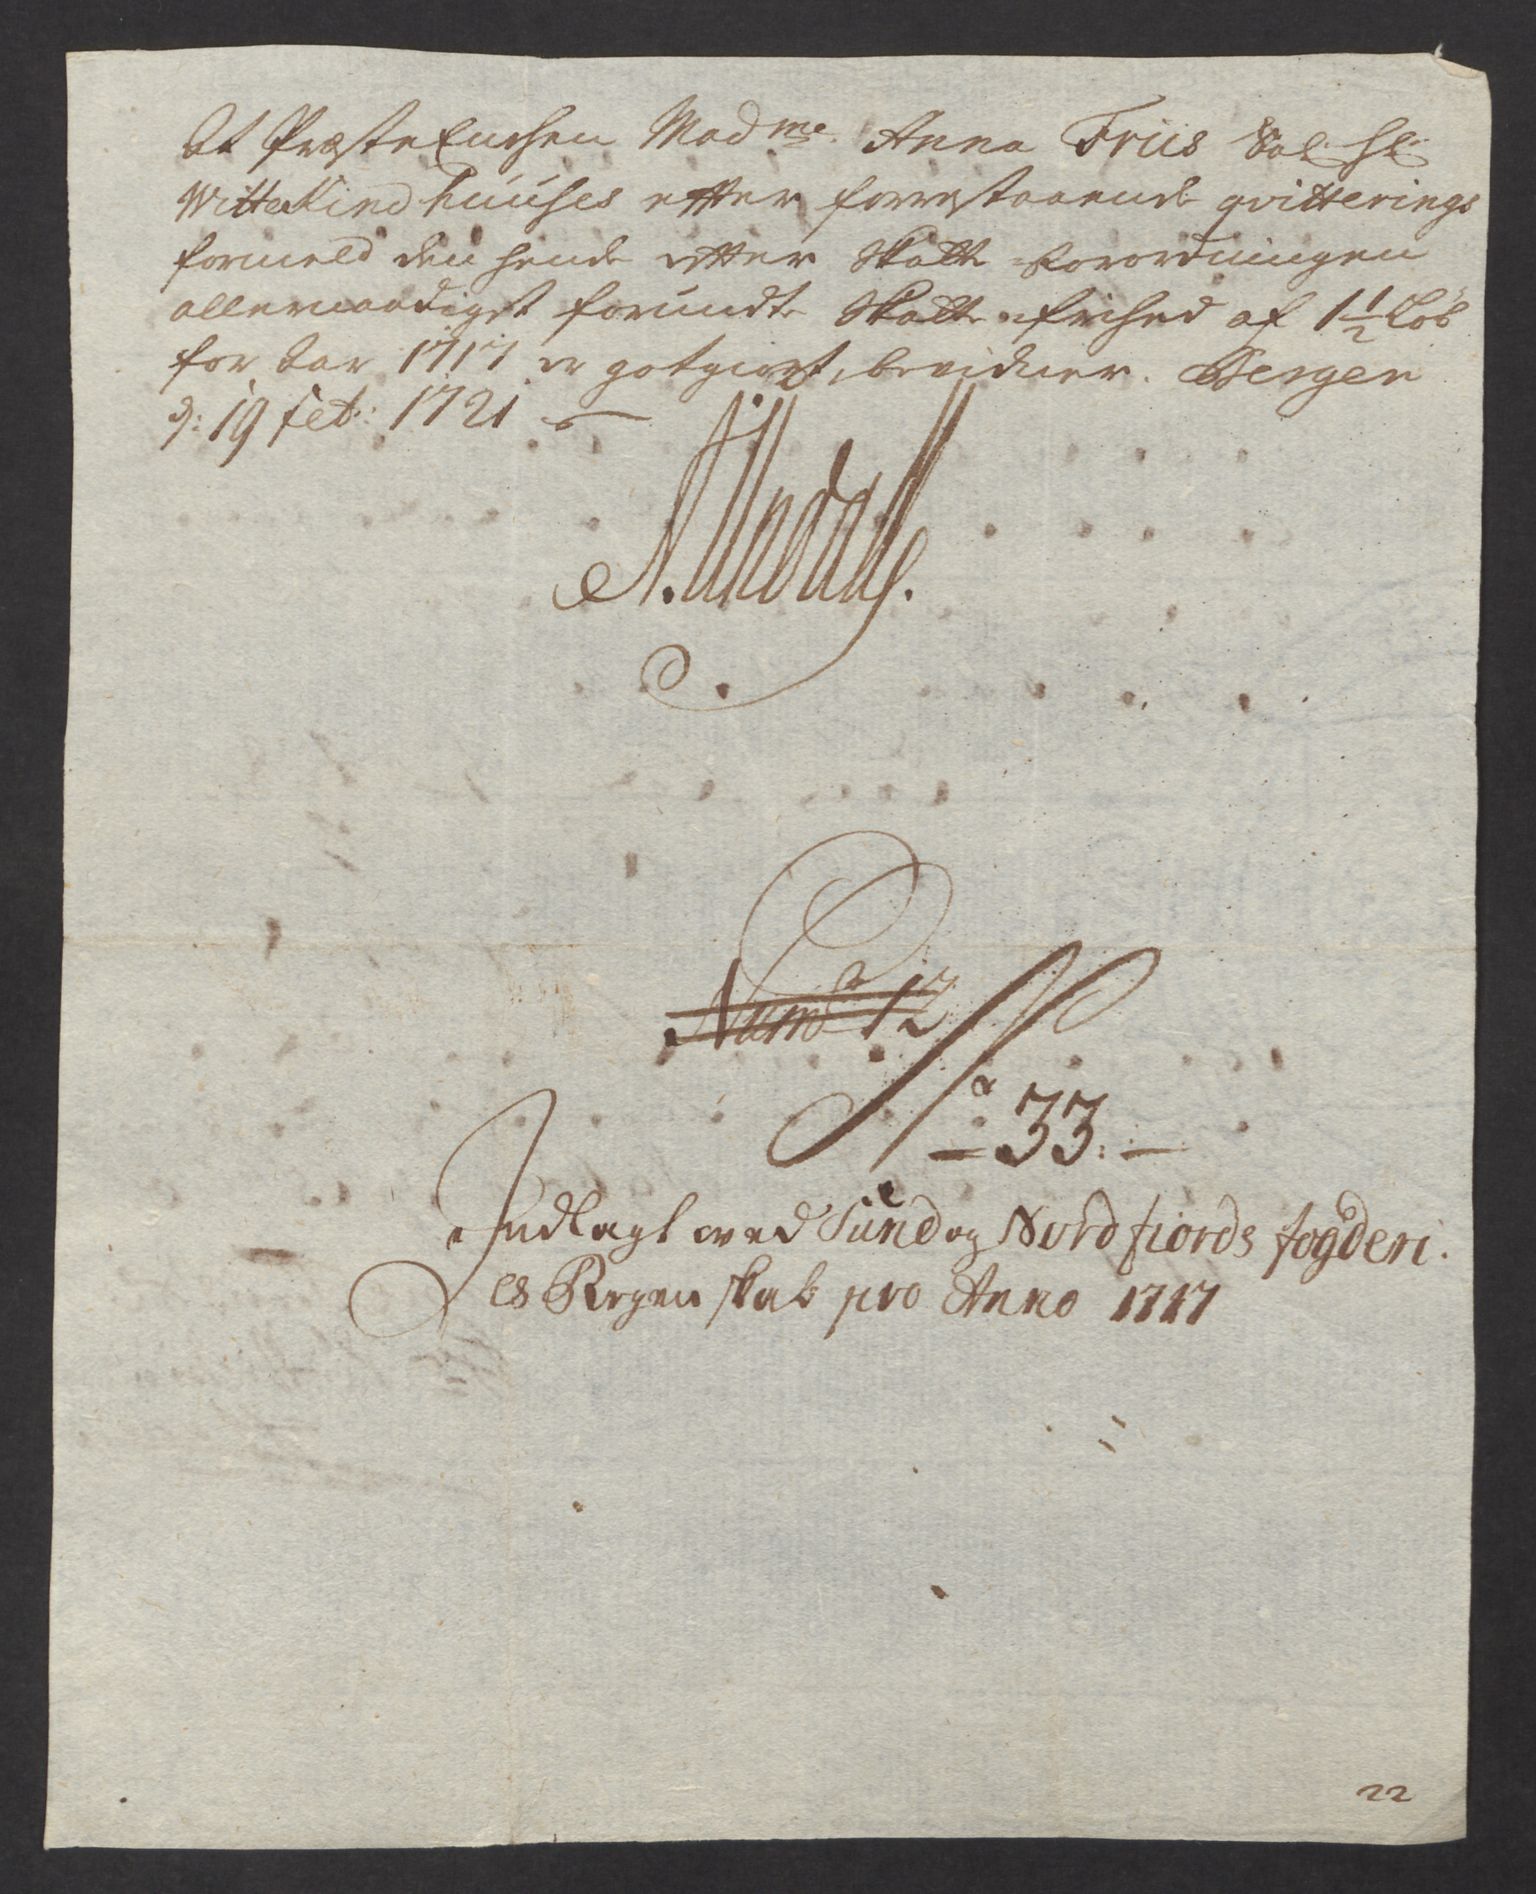 At PræsteEnchen Mad^me Anna Friis Sal: Hr
Witte Kind huuses efter forrestaaende qvitterings
formeld den hende efter Skatte-forordningen
allernaadigst forundte Skatte-frihed af 1 1/2 Løb
for Aar 1717 er gotgiort, bevidner. Bergen
d: 19 feb: 1721
Num^o 12
N^a 33.
Indlagt ved Sund og Nordfiords fogderi
es Regenskab pro Anno 1717
22